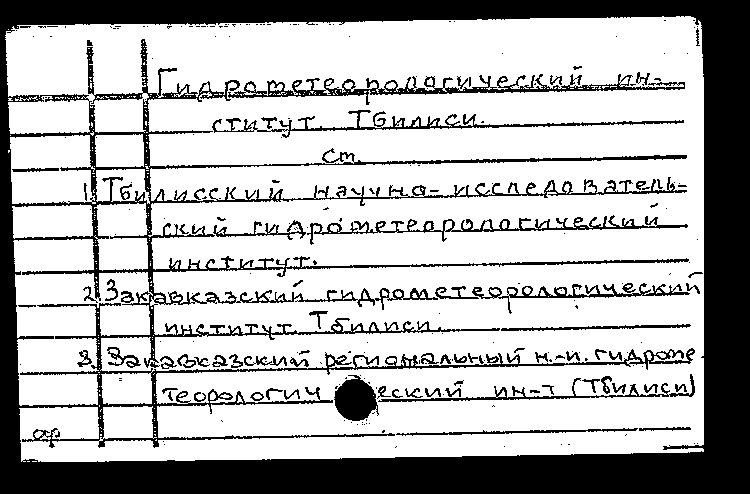 Гидрометеорологический ин-
ститут. Тбилиси.
см.
1. Тбилисский научно-исследователь-
ский гидрометеорологический
институт.
2. Закавказский гидрометеорологический
институт. Тбилиси.
3. Закавказский региональный н.-и. гидроме-
теорологический ин-т (Тбилиси)
ор